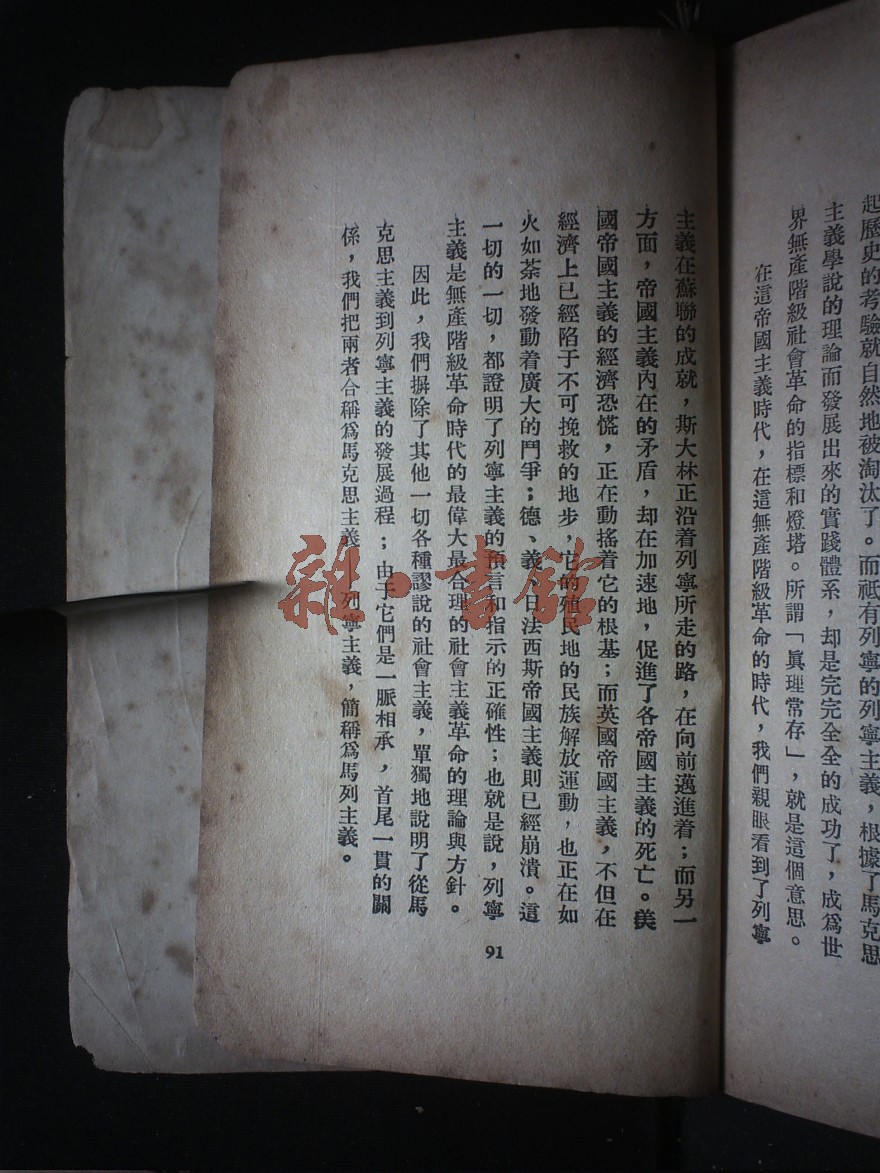 起歷史的考驗就自然地被淘汰了。而祇有列寧的列寧主義，根據了馬克思
主義學說的理論而發展出來的實踐體系，却是完完全全的成功了，成爲世
界無產階級社會革命的指標和燈塔。所謂「眞理常存」，就是這個意思。
在這帝國主義時代，在這無產階級革命的時代，我們親眼看到了列寧
主義在蘇聯的成就，斯大林正沿着列寧所走的路，在向前邁進着；而另一
方面，帝國主義內在的矛盾，却在加速地，促進了各帝國主義的死亡。美
國帝國主義的經濟恐慌，正在動搖着它的根基；而英國帝國主義，不但在
經濟上已經陷于不可挽救的地步，它的殖民地的民族解放運動，也正在如
火如荼地發動着廣大的鬥爭；德、義、日法西斯帝國主義則已經崩潰。這
一切的一切，都證明了列寧主義的預言和指示的正確性；也就是說，列寧
主義是無產階級革命時代的最偉大最合理的社會主義革命的理論與方針。
因此，我們摒除了其他一切各種謬說的社會主義，單獨地說明了從馬
克思主義到列寧主義的發展過程；由于它們是一脈相承，首尾一貫的關
係，我們把兩者合稱爲馬克思主義—列寧主義，簡稱爲馬列主義。
91
雜·書館